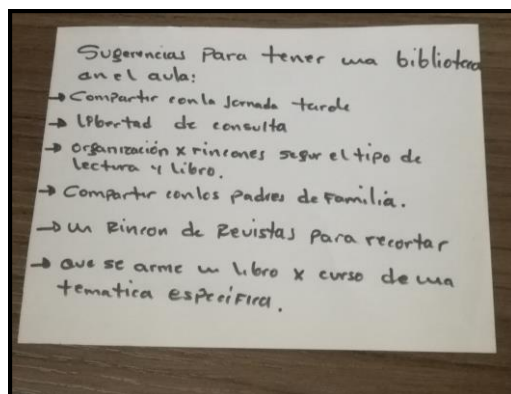 Sugerencias Para tener una biblioteca
en el aula:
→ Compartir con la Jornada tarde
→ libertad de consulta
→ organización x rincones segun el tipo de
lectura y libro.
→ Compartir con los Padres de Familia.
→ un Rincon de Revistas Para recortar
→ que se arme un libro x curso de una
tematica especifica.